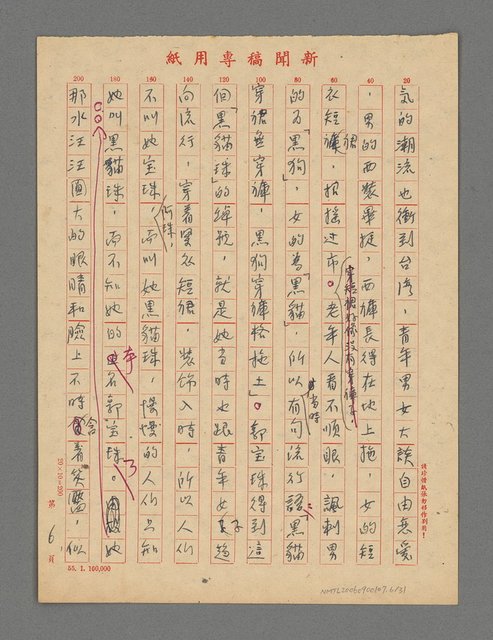 新聞稿專用紙
氣的潮流也衝到台灣，青年男女大談自由戀愛
，男的西裝畢挺，西褲長得在地上拖，女的短
衣短裙，招搖過市。老年人看不順眼，諷刺男
穿短裙好像沒有穿褲子
的為「黑狗」，女的為「黑貓」，所以當時有句流行語：黑貓
穿裙無穿褲，黑狗穿褲格拖土。郭宝珠得到這
個「黑貓珠」的綽號，就是她當時也跟青年女子趕
向流行，穿着黑衣短裙，裝飾入時，所以人們
不叫她宝珠，阿珠，而叫她黑貓珠，慢慢的人們只知
她叫黑貓珠，而不知她的本名郭宝珠了。她
那水汪汪圓大的眼睛和臉上不時含着笑靨，似
20
40
60
80
100
120
140
160
180
200
請珍惜紙張勿移作別用！
20×10=200
第 6 頁
55. 1. 100,000
NMTL20060900107.6/31